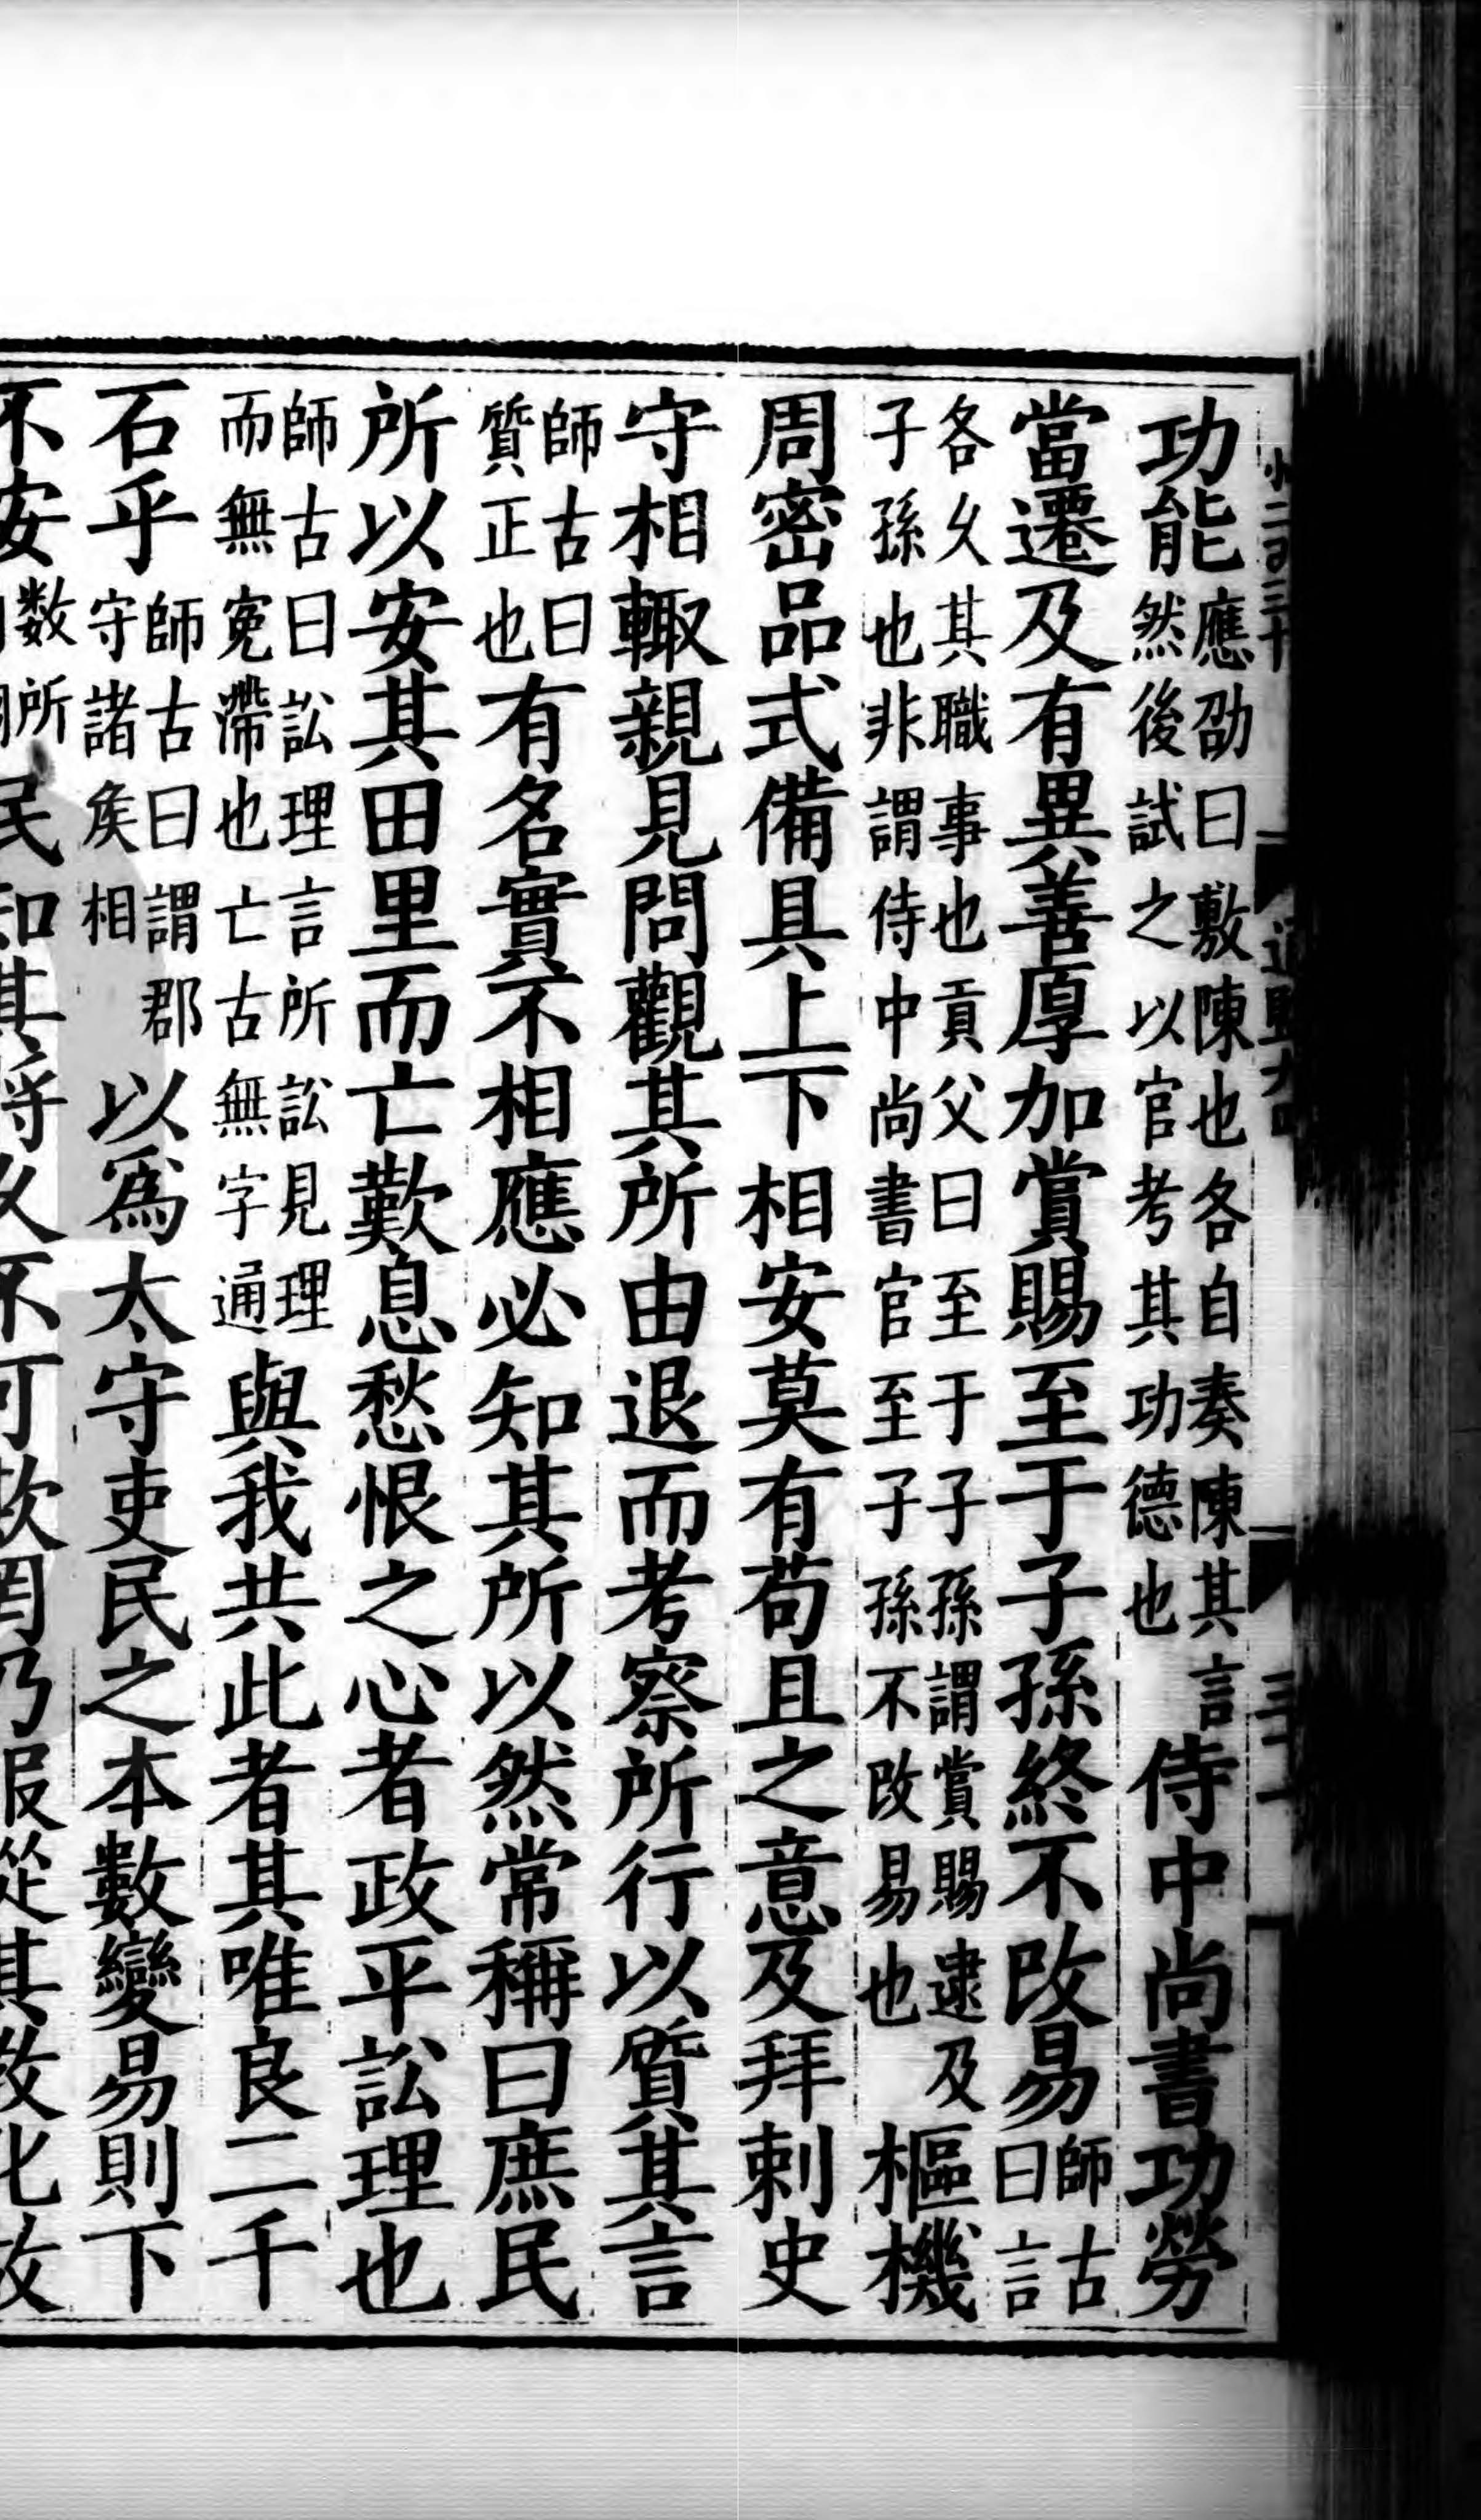 功能應劭曰敷陳也各自奏陳其言然後試之以官考其功德也侍中尚書功勞
當遷及有異善厚加賞賜至于子孫終不改易師古曰言
各久其職事也貢父曰至于子孫謂賞賜逮及子孫也非謂侍中尚書官至子孫不改易也樞機
周密品式備具上下相安莫有苟且之意及拜刺史
守相輙親見問觀其所由退而考察所行以質其言
師古曰質正也有名實不相應必知其所以然常稱曰庶民
所以安其田里而亡歎息愁恨之心者政平訟理也
師古曰訟理言所訟見理而無冤滯也亡古無字通與我共此者其唯良二千
石乎師古曰謂郡守諸矦相以爲太守吏民之本數變易則下
不安數所民知其將久不可欺罔乃服從其教化故